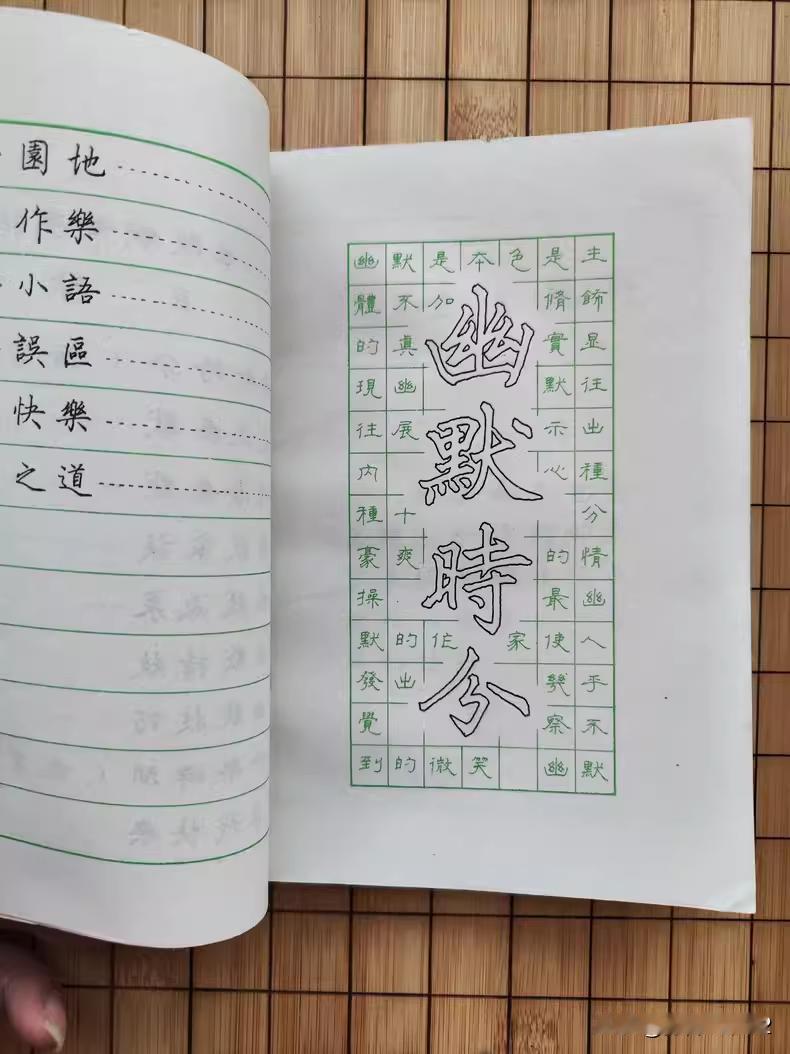 園地
作樂
小語
誤區
快樂
之道
幽默時分
幽默是本色是主
體不加脩飾
的真實显
現幽默往
往展示出
內心種
種十分
豪爽的情
操.最幽
默的作家使人
發出幾乎
覺察不
到的微笑 幽默